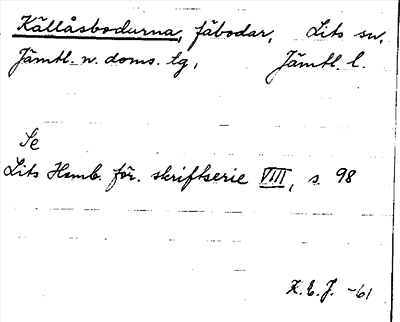 Källåsbodurna, fäbodar, Lits sn,
Jämtl. n. doms. tg, Jämtl. l.
Se
Lits Hemb. för. skriftserie VIII, s 98
K.E.J. -61